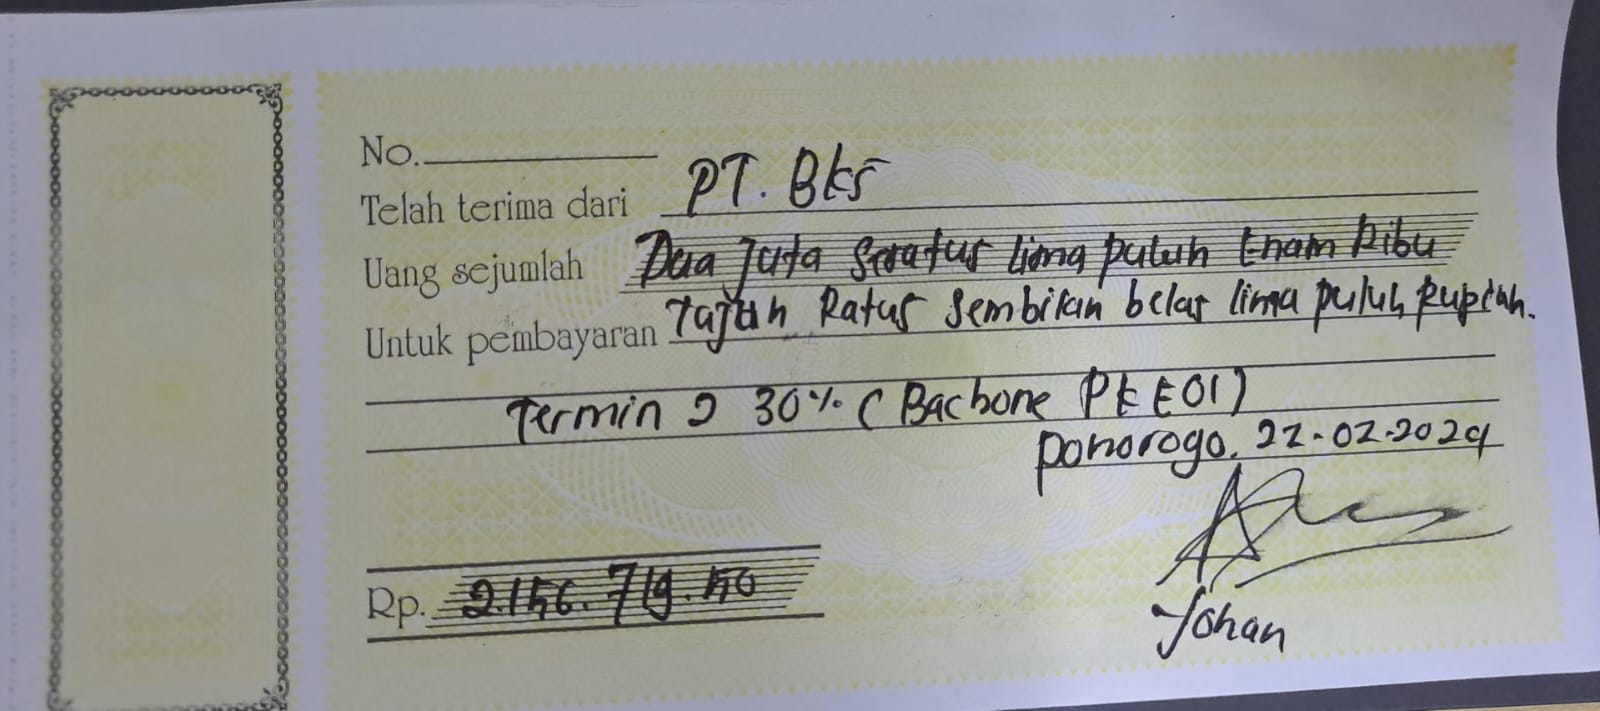 No.
Telah terima dari PT. Bks
Uang sejumlah Dua Juta Seratus lima puluh Enam Ribu
Tujuh Ratus Sembilan belas lima puluh Rupiah.
Untuk pembayaran
Termin 2 30% (Bacbone PEE01)
Ponorogo. 22-02-2024
Rp. 2.156.719.50
Johan